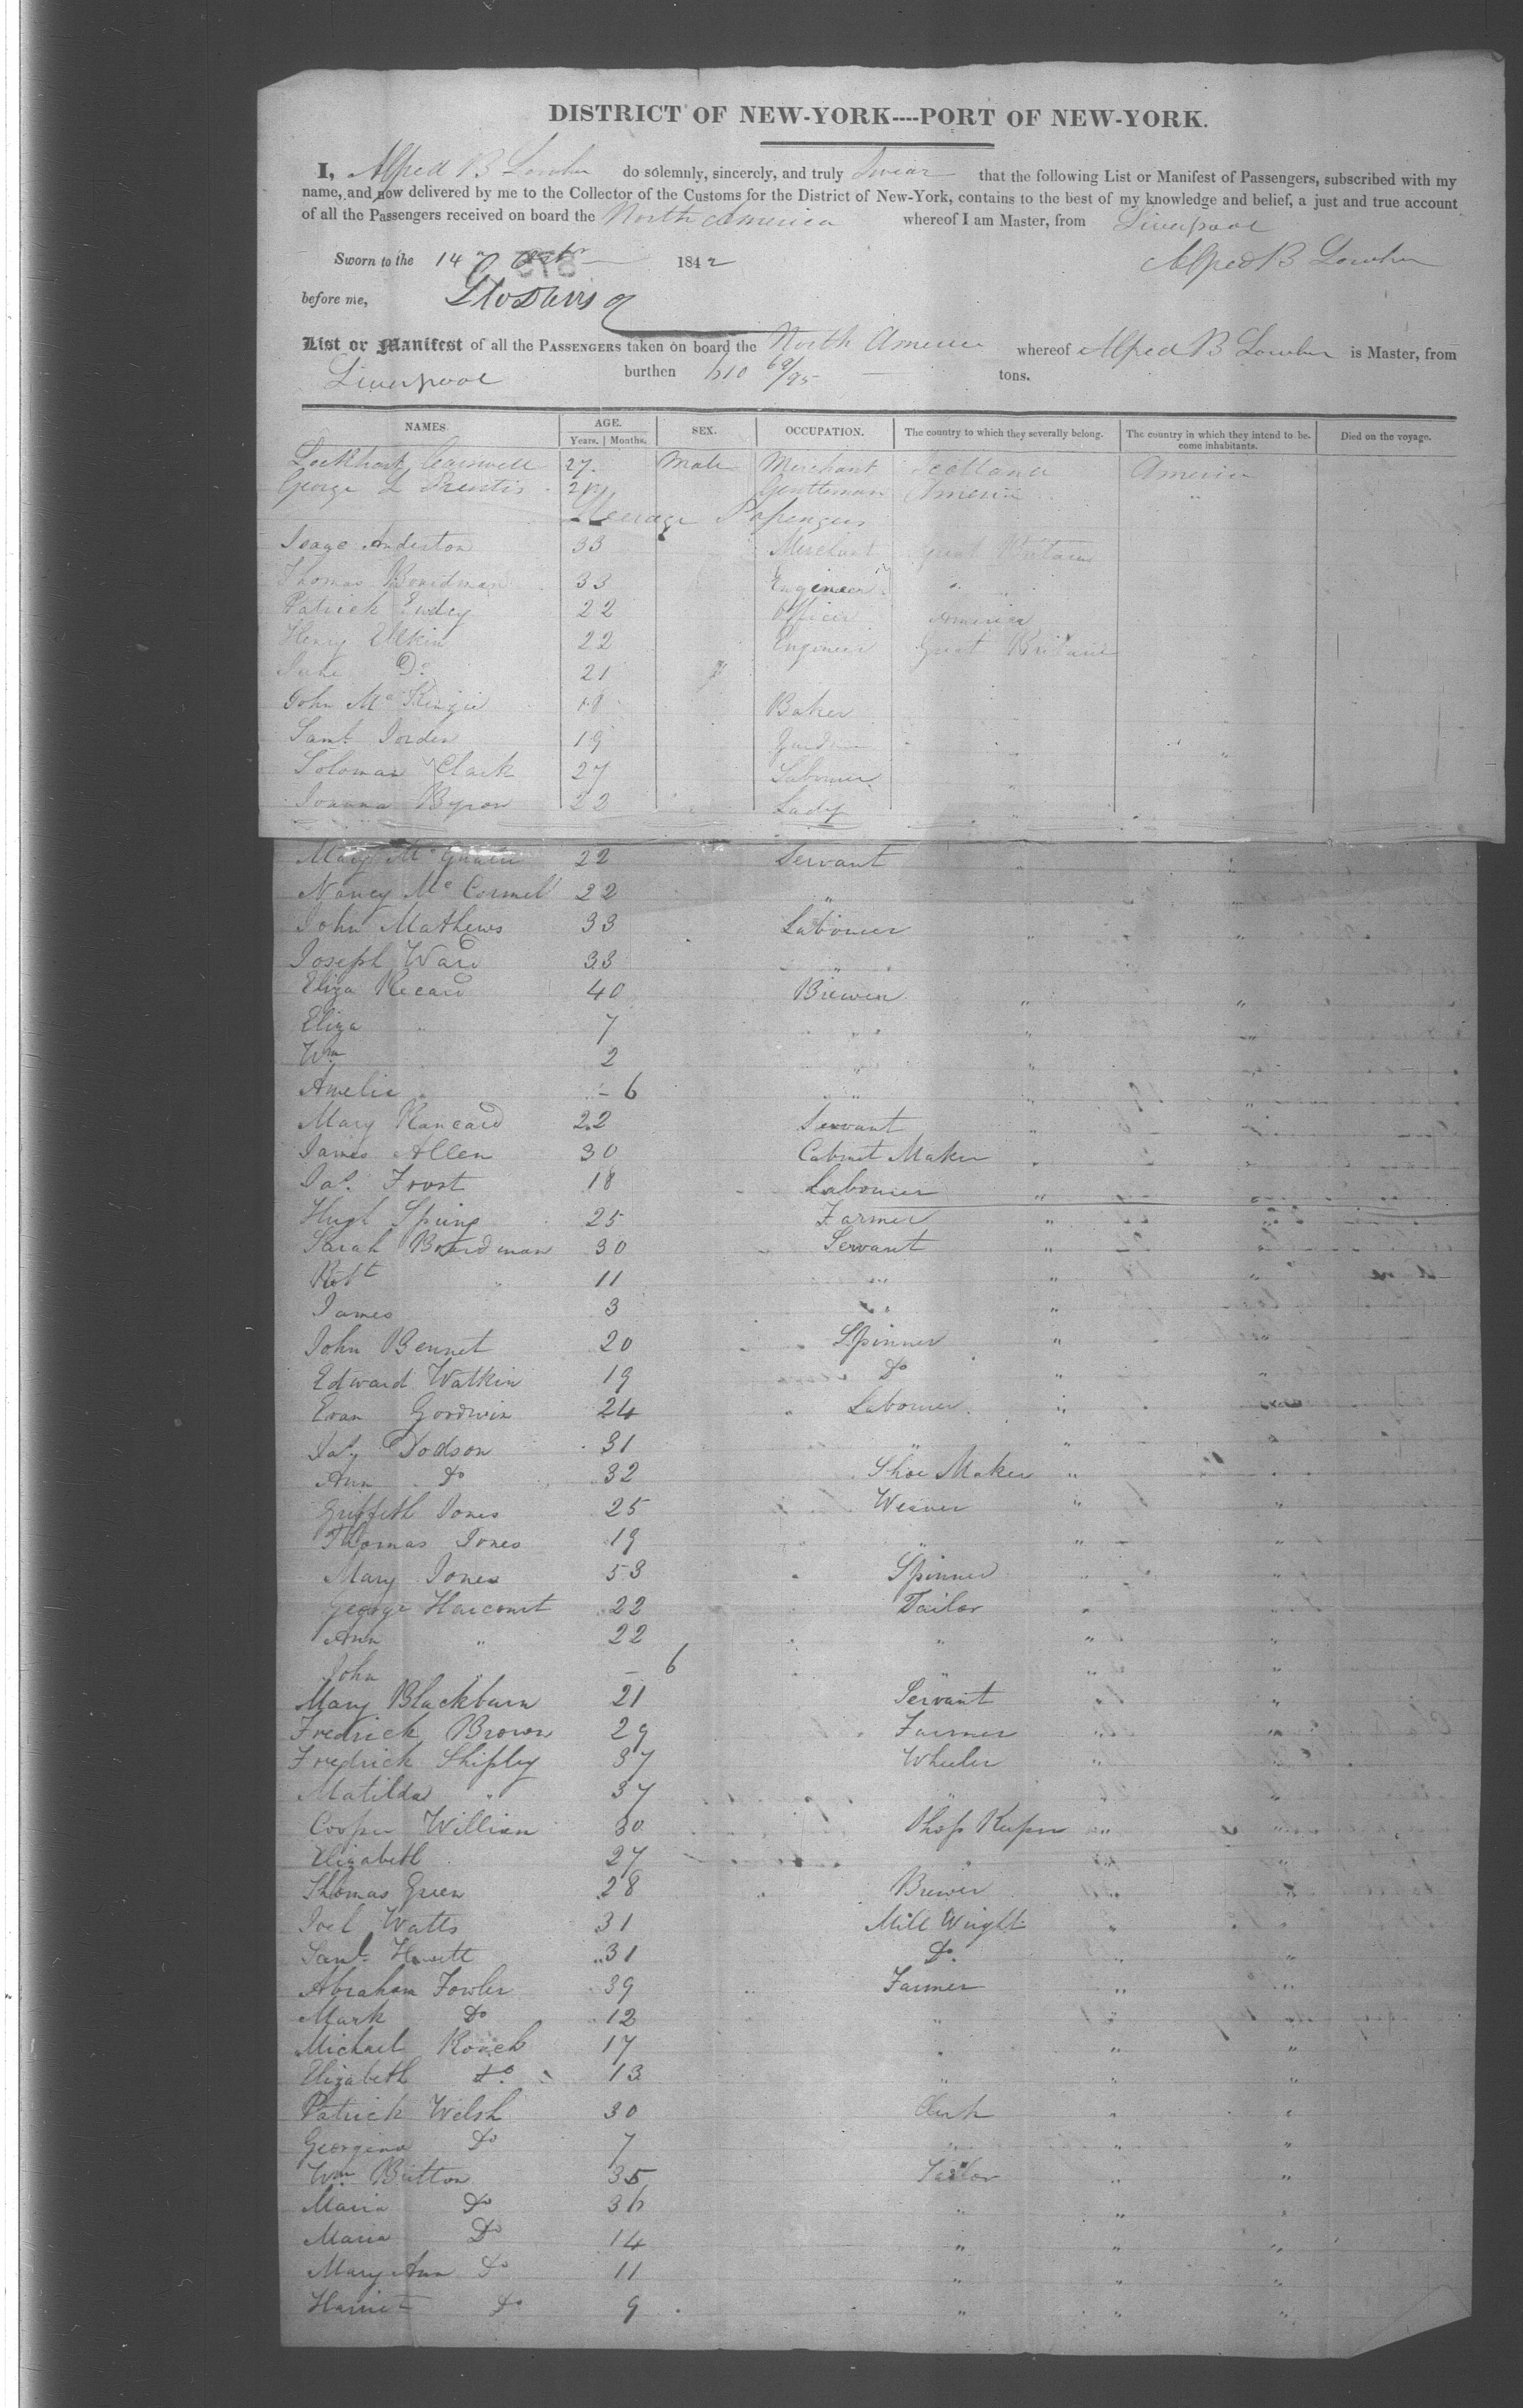 DISTRICT OF NEW-YORK----PORT OF NEW-YORK.
I, Alfred B Lowber do solemnly, sincerely, and truly Swear that the following List or Manifest of Passengers, subscribed with my
name, and now delivered by me to the Collector of the Customs for the District of New-York, contains to the best of my knowledge and belief, a just and true account
of all the Passengers received on board the North America whereof I am Master, from Liverpool
Sworn to the 14 1842 Alfred B Lowber
before me,
List or Manifest of all the PASSENGERS taken on board the North America whereof Alfred B Lowber is Master, from
Liverpool burthen 610 69/95 tons.
NAMES. AGE. SEX. OCCUPATION. The country to which they severally belong. The country in which they intend to be- Died on the voyage.
Years. | Months. come inhabitants.
Lockhart 27 Male Merchant Scotland America
George L Prentis Gentleman America "
Steerage Passengers
Isaac Anderton 33 Merchant Great Britain
Thomas Boardman 33 Engineer "
Patrick 22 Officer America
Henry 22 Engineer Great Britain
Do 21 F
John 18 Baker
Saml Jorden 19
Soloman Clark 27 Labourer
Joanna Byron 22 Lady
Mary 22 Servant
Nancy Mc Cormell 22 "
John Mathews 33 Labourer
Joseph Ward 33 "
Eliza Recard 40 Brewer
Eliza " 7
Wm 2 "
Amelia " - 6 "
Mary Rancard 22 Servant
James Allen 30 Cabinet Maker
Jas. Frost 18 Labourer "
Hugh Spring 25 Farmer "
Sarah Boardman 30 Servant "
Robt " 11 " "
James 3 " "
John Bennet 20 Spinner "
Edward Watkin 19 Do "
Evan Goodwin 24 Labourer "
Jas Dodson 31 " "
Ann Do 32 Shoe Maker "
Griffith Jones 25 Weaver " "
Thomas Jones 19 " " "
Mary Jones 53 Spinner " "
George Harcourt 22 Tailor " "
Ann " 22 " " "
John " - 6 " " "
Mary Blackburn 21 Servant " "
Fredrick Brown 29 Farmer " "
Fredrick Shipley 37 Wheeler " "
Matilda " 37 "
Cooper William 30 Shop Keeper " "
Elizabeth 27 " " "
Thomas Green 28 Brewer " "
Joel Watts 31 Mill Wright " "
Saml. Hewitt 31 Do. " "
Abraham Fowler 39 Farmer " "
Mark Do 12 " " "
Michael Roach 17 " " "
Elizabeth Do. 13 " " "
Patrick Welsh 30 Clerk " "
Georgina Do 7 " " "
Wm Britton 35 Tailor " "
Maria Do 36 " " "
Maria Do 14 " " "
Mary Ann Do 11 " " "
Harriet Do 9 " " "